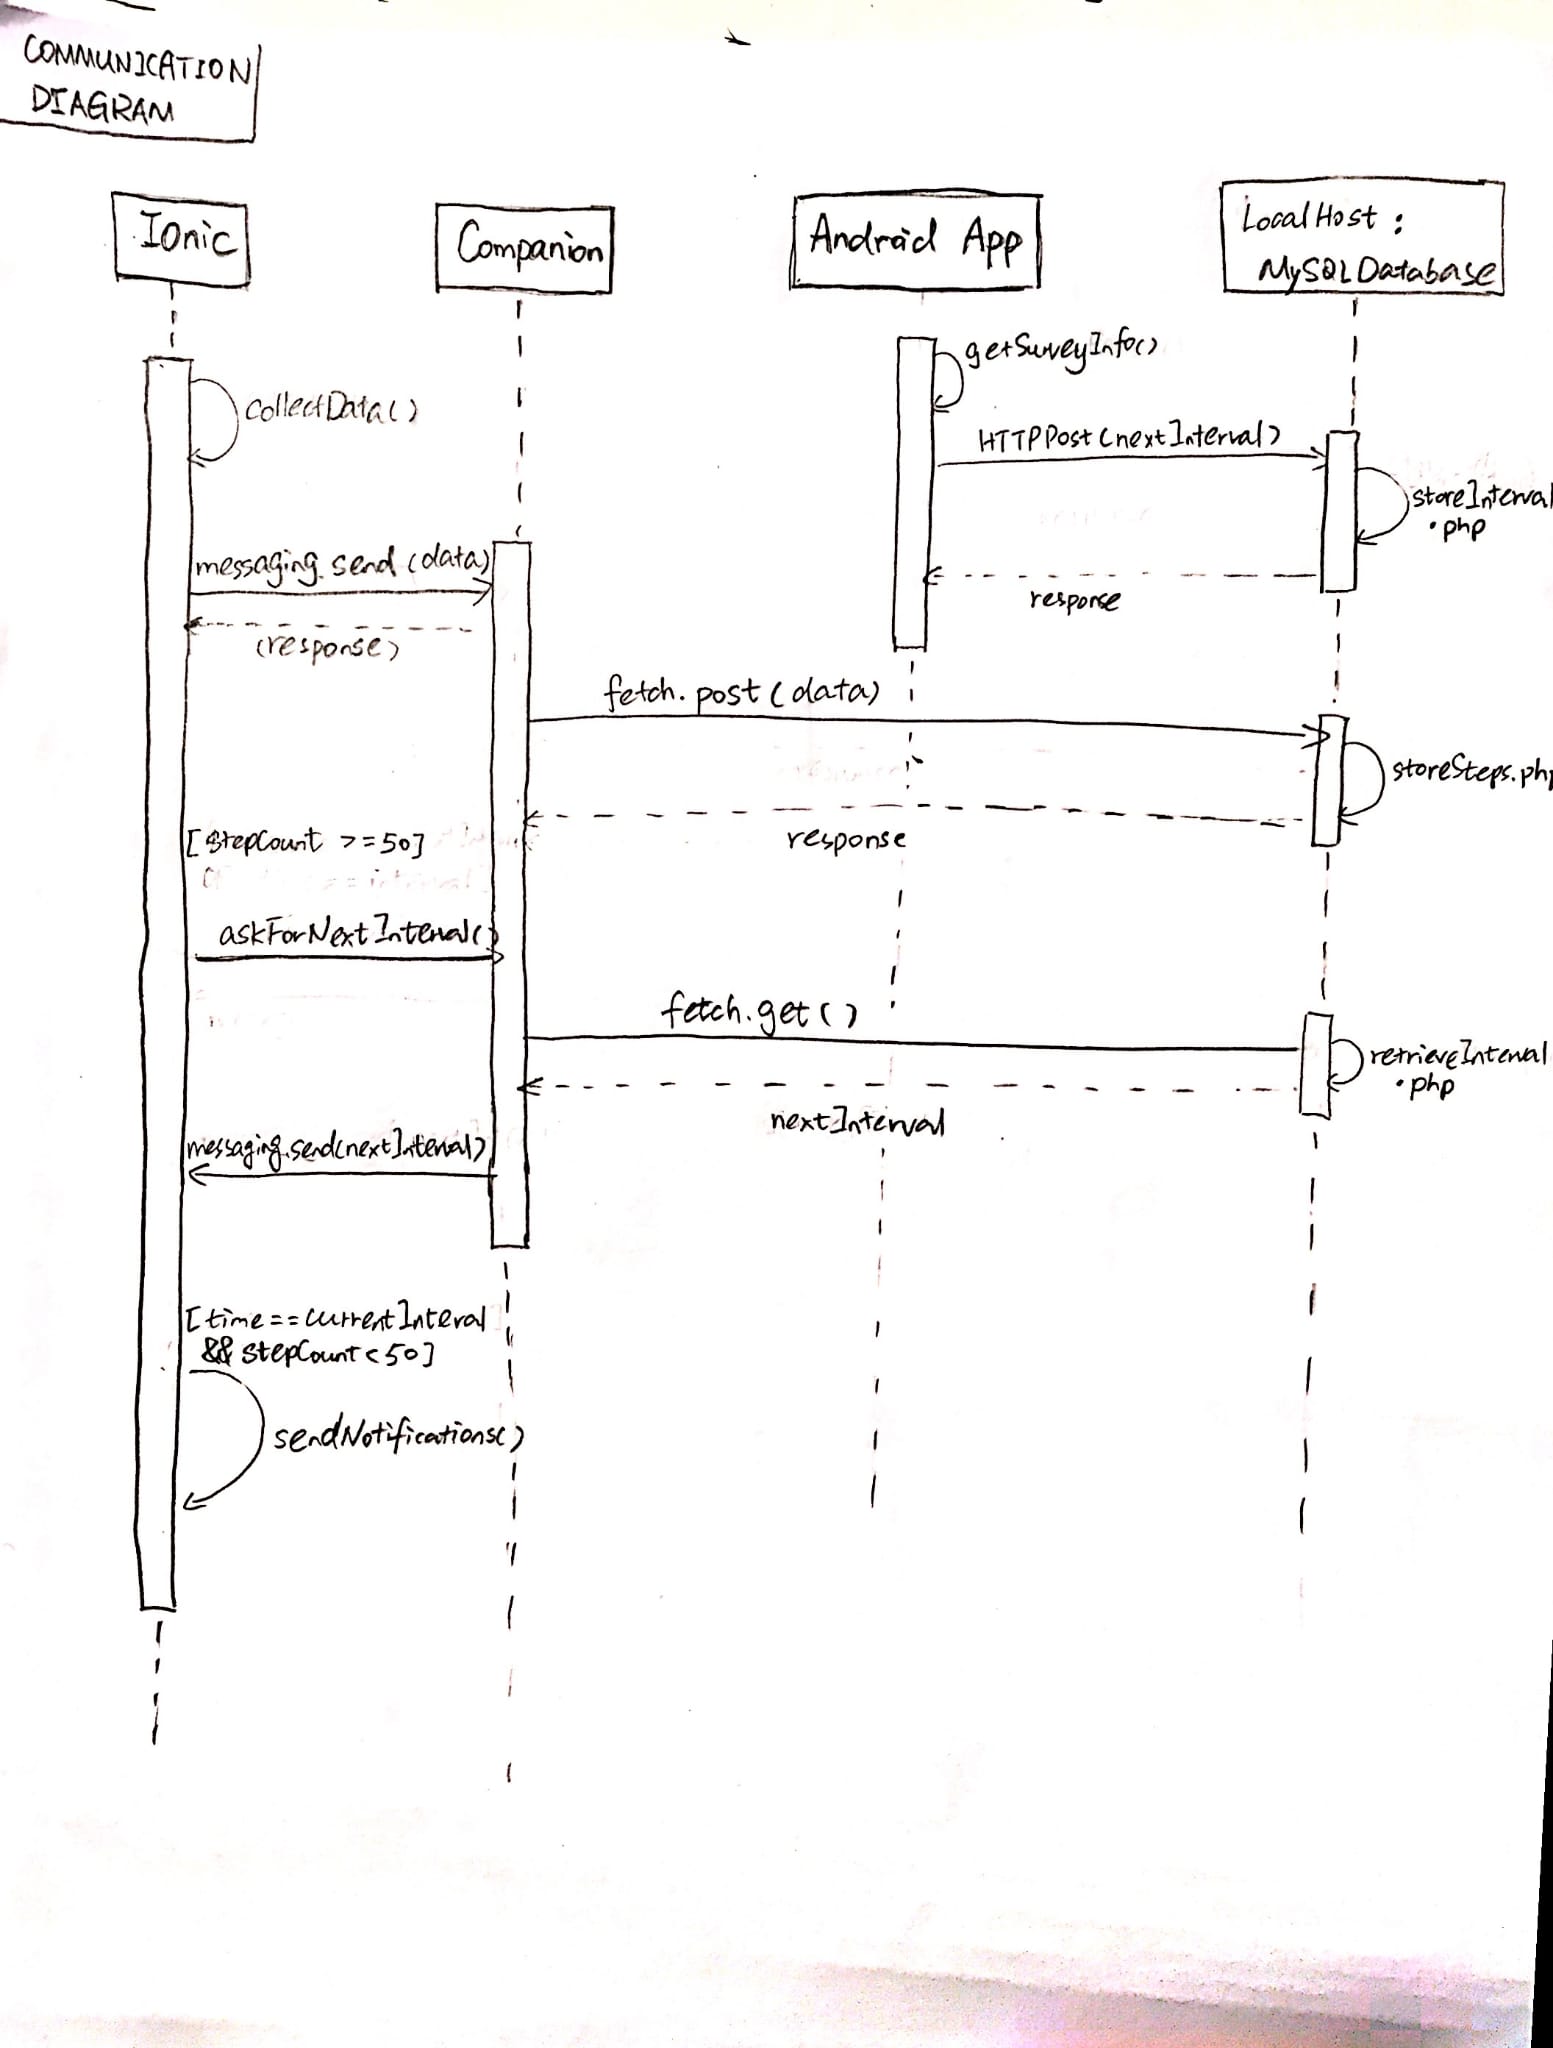 COMMUNICATION
DIAGRAM
Ionic
Companion
Android App
LocalHost :
MySQLDatabase
getSurveyInfo()
collectData()
HTTPPost(nextInterval)
storeInterval
.php
messaging.send(data)
response
(response)
fetch.post(data)
storeSteps.php
response
[stepCount >=50]
askForNextInterval()
fetch.get()
retrieveInterval
.php
nextInterval
messaging.send(nextInterval)
[time==currentInterval]
&& stepCount<50]
sendNotifications()